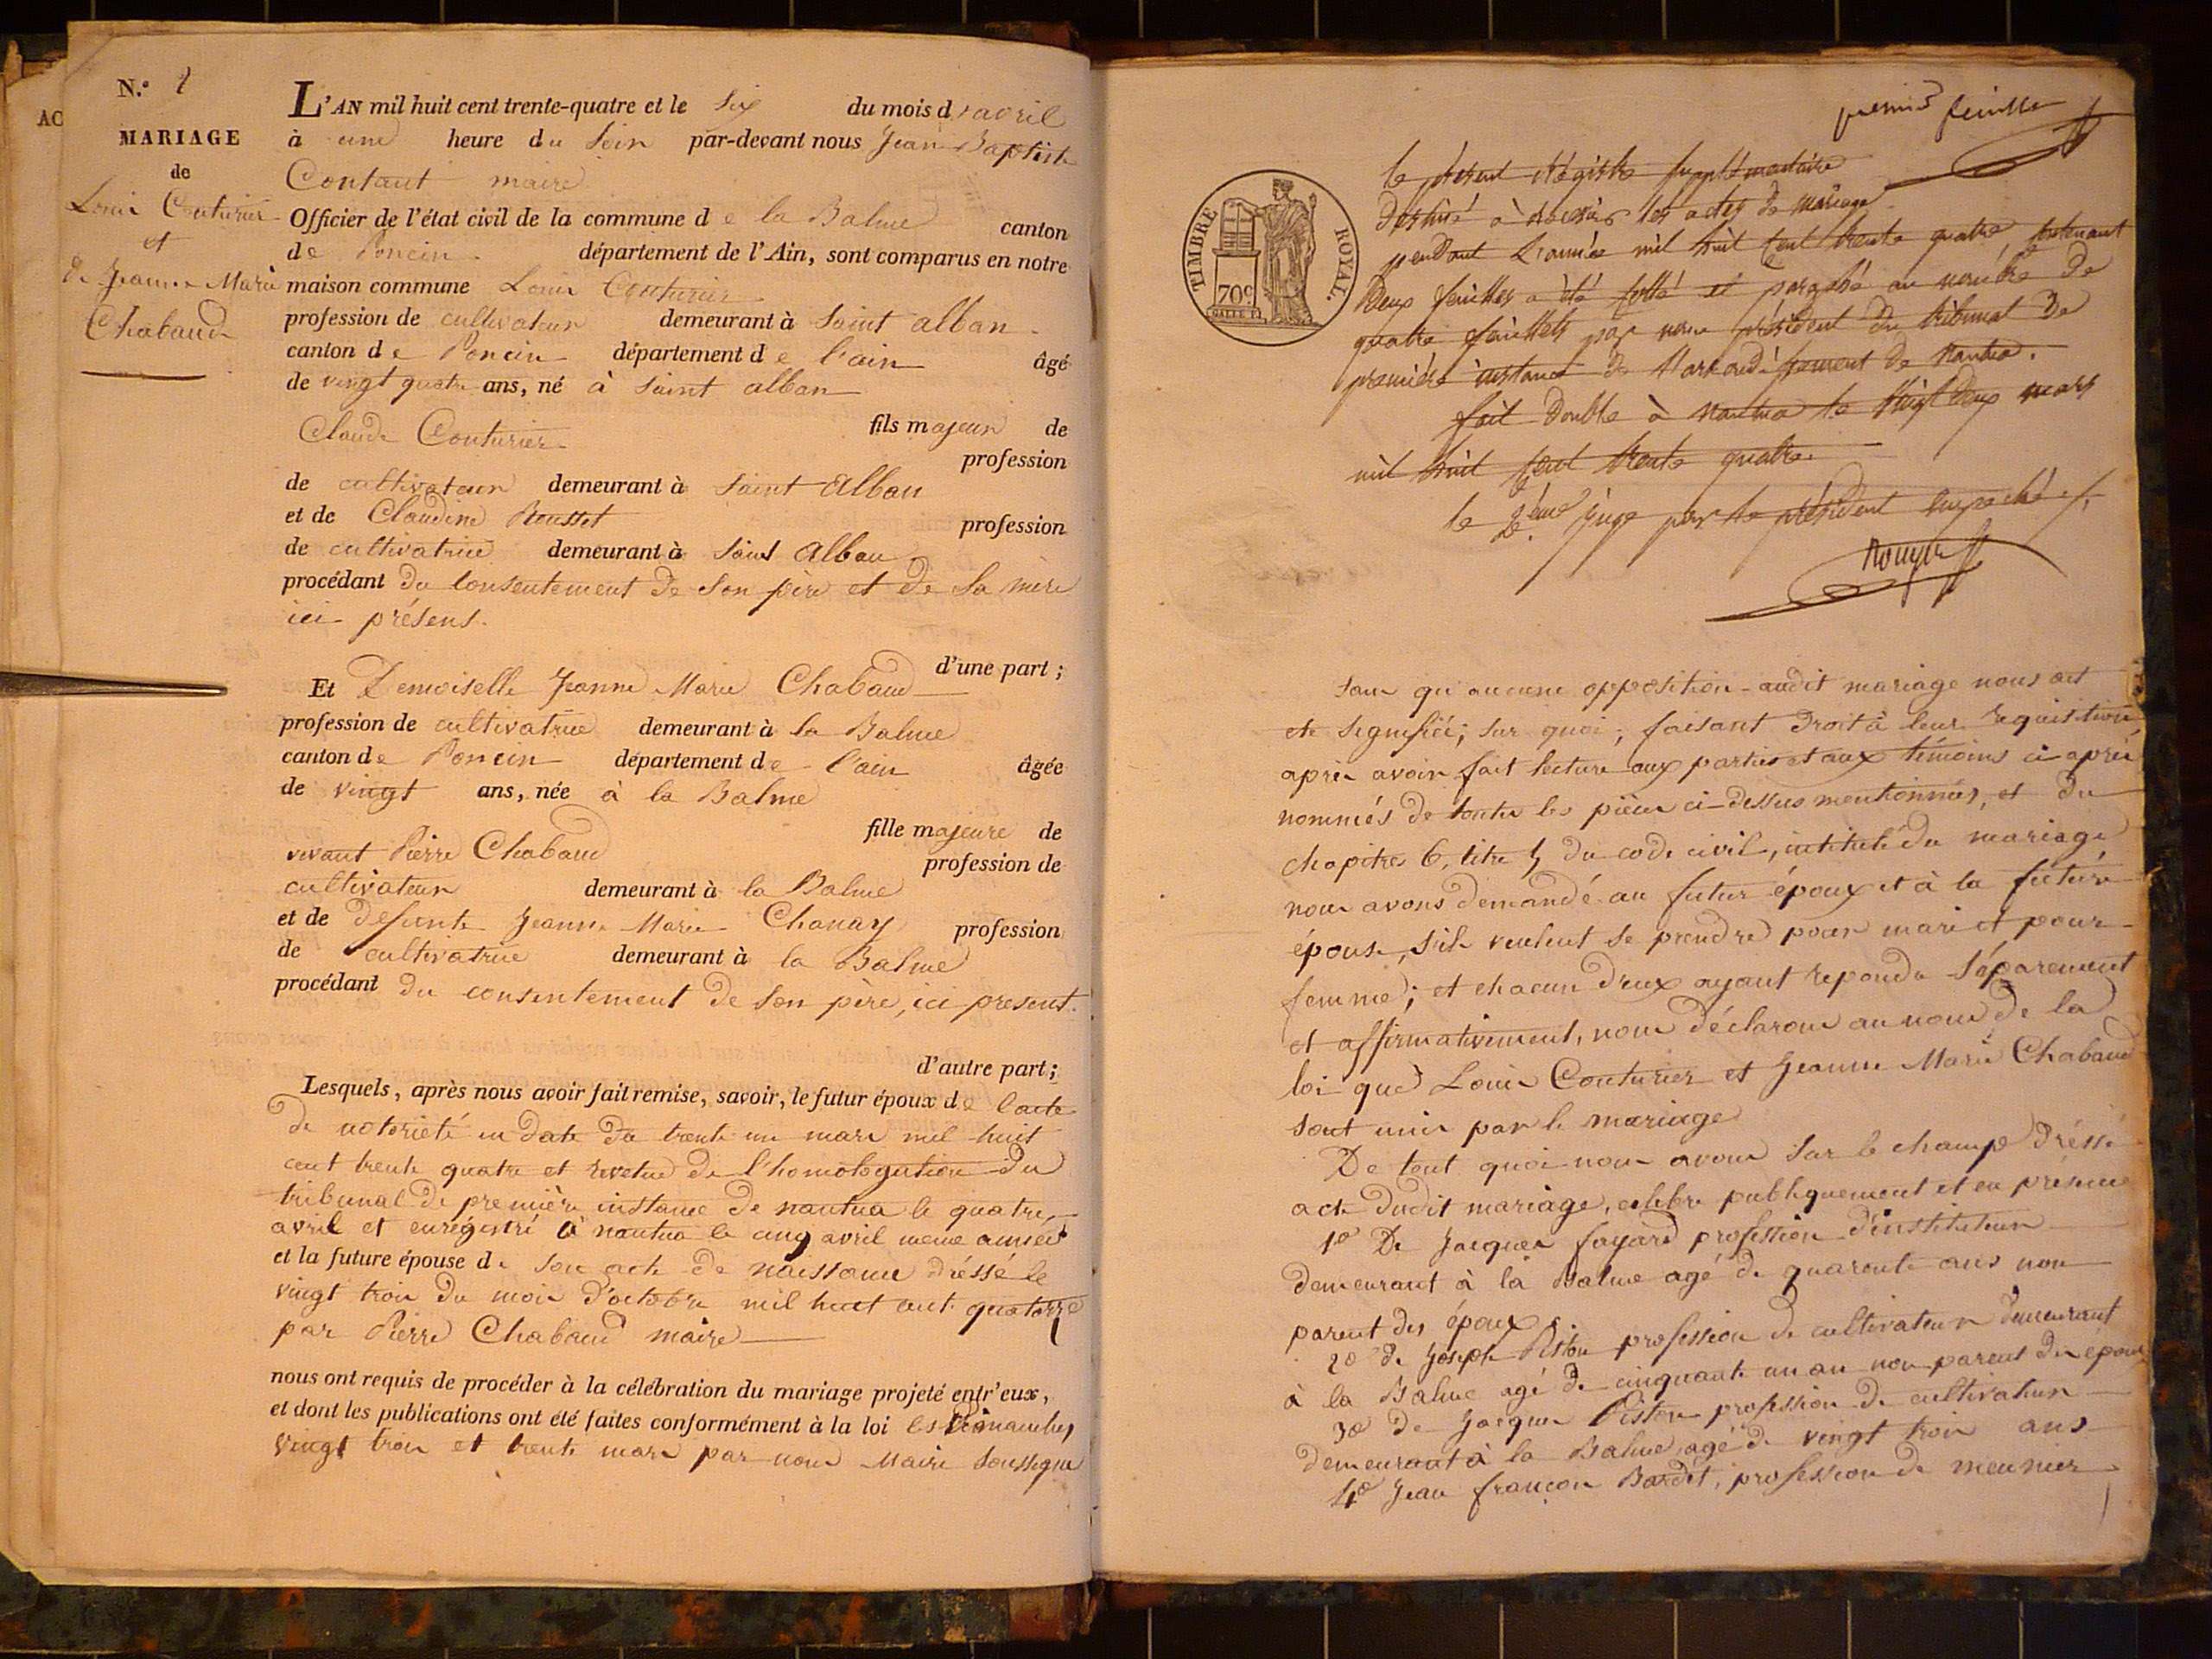 AC
N.º 1
MARIAGE
de
Louis Couturier
et
de Jeanne Marie
Chabaud
L'AN mil huit cent trente-quatre et le six du mois d'avril
à une heure du soir par-devant nous Jean Baptiste
Contaut maire
Officier de l'état civil de la commune de la Balme canton
de Poncin département de l'Ain, sont comparus en notre
maison commune Louis Couturier
profession de cultivateur demeurant à saint alban
canton de Poncin département de l'ain âgé
de vingt quatre ans, né à saint alban
fils majeur de
Claude Couturier profession
de cultivateur demeurant à saint alban
et de Claudine Rousset profession
de cultivatrice demeurant à saint alban
procédant du consentement de son père et de sa mère
ici présens.
d'une part;
Et Demoiselle Jeanne Marie Chabaud
profession de cultivatrice demeurant à la Balme
canton de Poncin département de l'ain âgée
de vingt ans, née à la Balme
fille majeure de
vivant Pierre Chabaud profession de
cultivateur demeurant à la Balme
et de defunte Jeanne Marie Chanay profession
de cultivatrice demeurant à la Balme
procédant du consentement de son père, ici present.
d'autre part;
Lesquels, après nous avoir fait remise, savoir, le futur époux de l'acte
de notorieté en date du trente un mars mil huit
cent trente quatre et revetue de l'homologation du
tribunal de première instance de nantua le quatre
avril et enrégistré à nantua le cinq avril meme année
et la future épouse de son acte de naissance dréssé le
vingt trois du mois d'octobre mil huit cent quatorze
par Pierre Chabaud maire
nous ont requis de procéder à la célébration du mariage projeté entr'eux,
et dont les publications ont été faites conformément à la loi les Dimanches
vingt trois et trente mars par nous Maire soussigné
premier feuillet
TIMBRE ROYAL.
70c
le présent Régistre supplémentaire
destiné à recevoir les actes de mariage
pendant l'année mil huit cent trente quatre, contenant
deux feuilles a été cotté et paraphé au nombre de
quatre feuillets par nous président du tribunal de
première instance de l'arrondissement de Nantua.
fait double à nantua le vingt deux mars
mil huit cent trente quatre.
le 2ème juge pour le président empeché
sans qu'aucune opposition audit mariage nous ait
été signifiée; sur quoi, faisant droit à leur requisition
après avoir fait lecture aux parties et aux témoins ci après
nommés de toutes les pièces ci-dessus mentionnées, et du
chapitre 6, titre 5 du code civil, intitulé du mariage
nous avons demandé au futur époux et à la future
épouse, s'ils veulent se prendre pour mari et pour
femme; et chacun d'eux ayant repondu séparement
et affirmativement, nous déclarons au nom de la
loi que Louis Couturier et Jeanne Marie Chabaud
sont unis par le mariage
De tout quoi nous avons sur le champ dréssé
acte dudit mariage, célebré publiquement et en présence
1º De Jacques fayard profession d'instituteur
demeurant à la Balme agé de quarante ans non
parent des époux.
2º de Joseph Piston profession de cultivateur demeurant
à la Balme agé de cinquante un an non parent des époux
3º de Jacques Piston profession de cultivateur
demeurant à la Balme, agé de vingt trois ans
4º Jean françois Bardet, profession de meunier